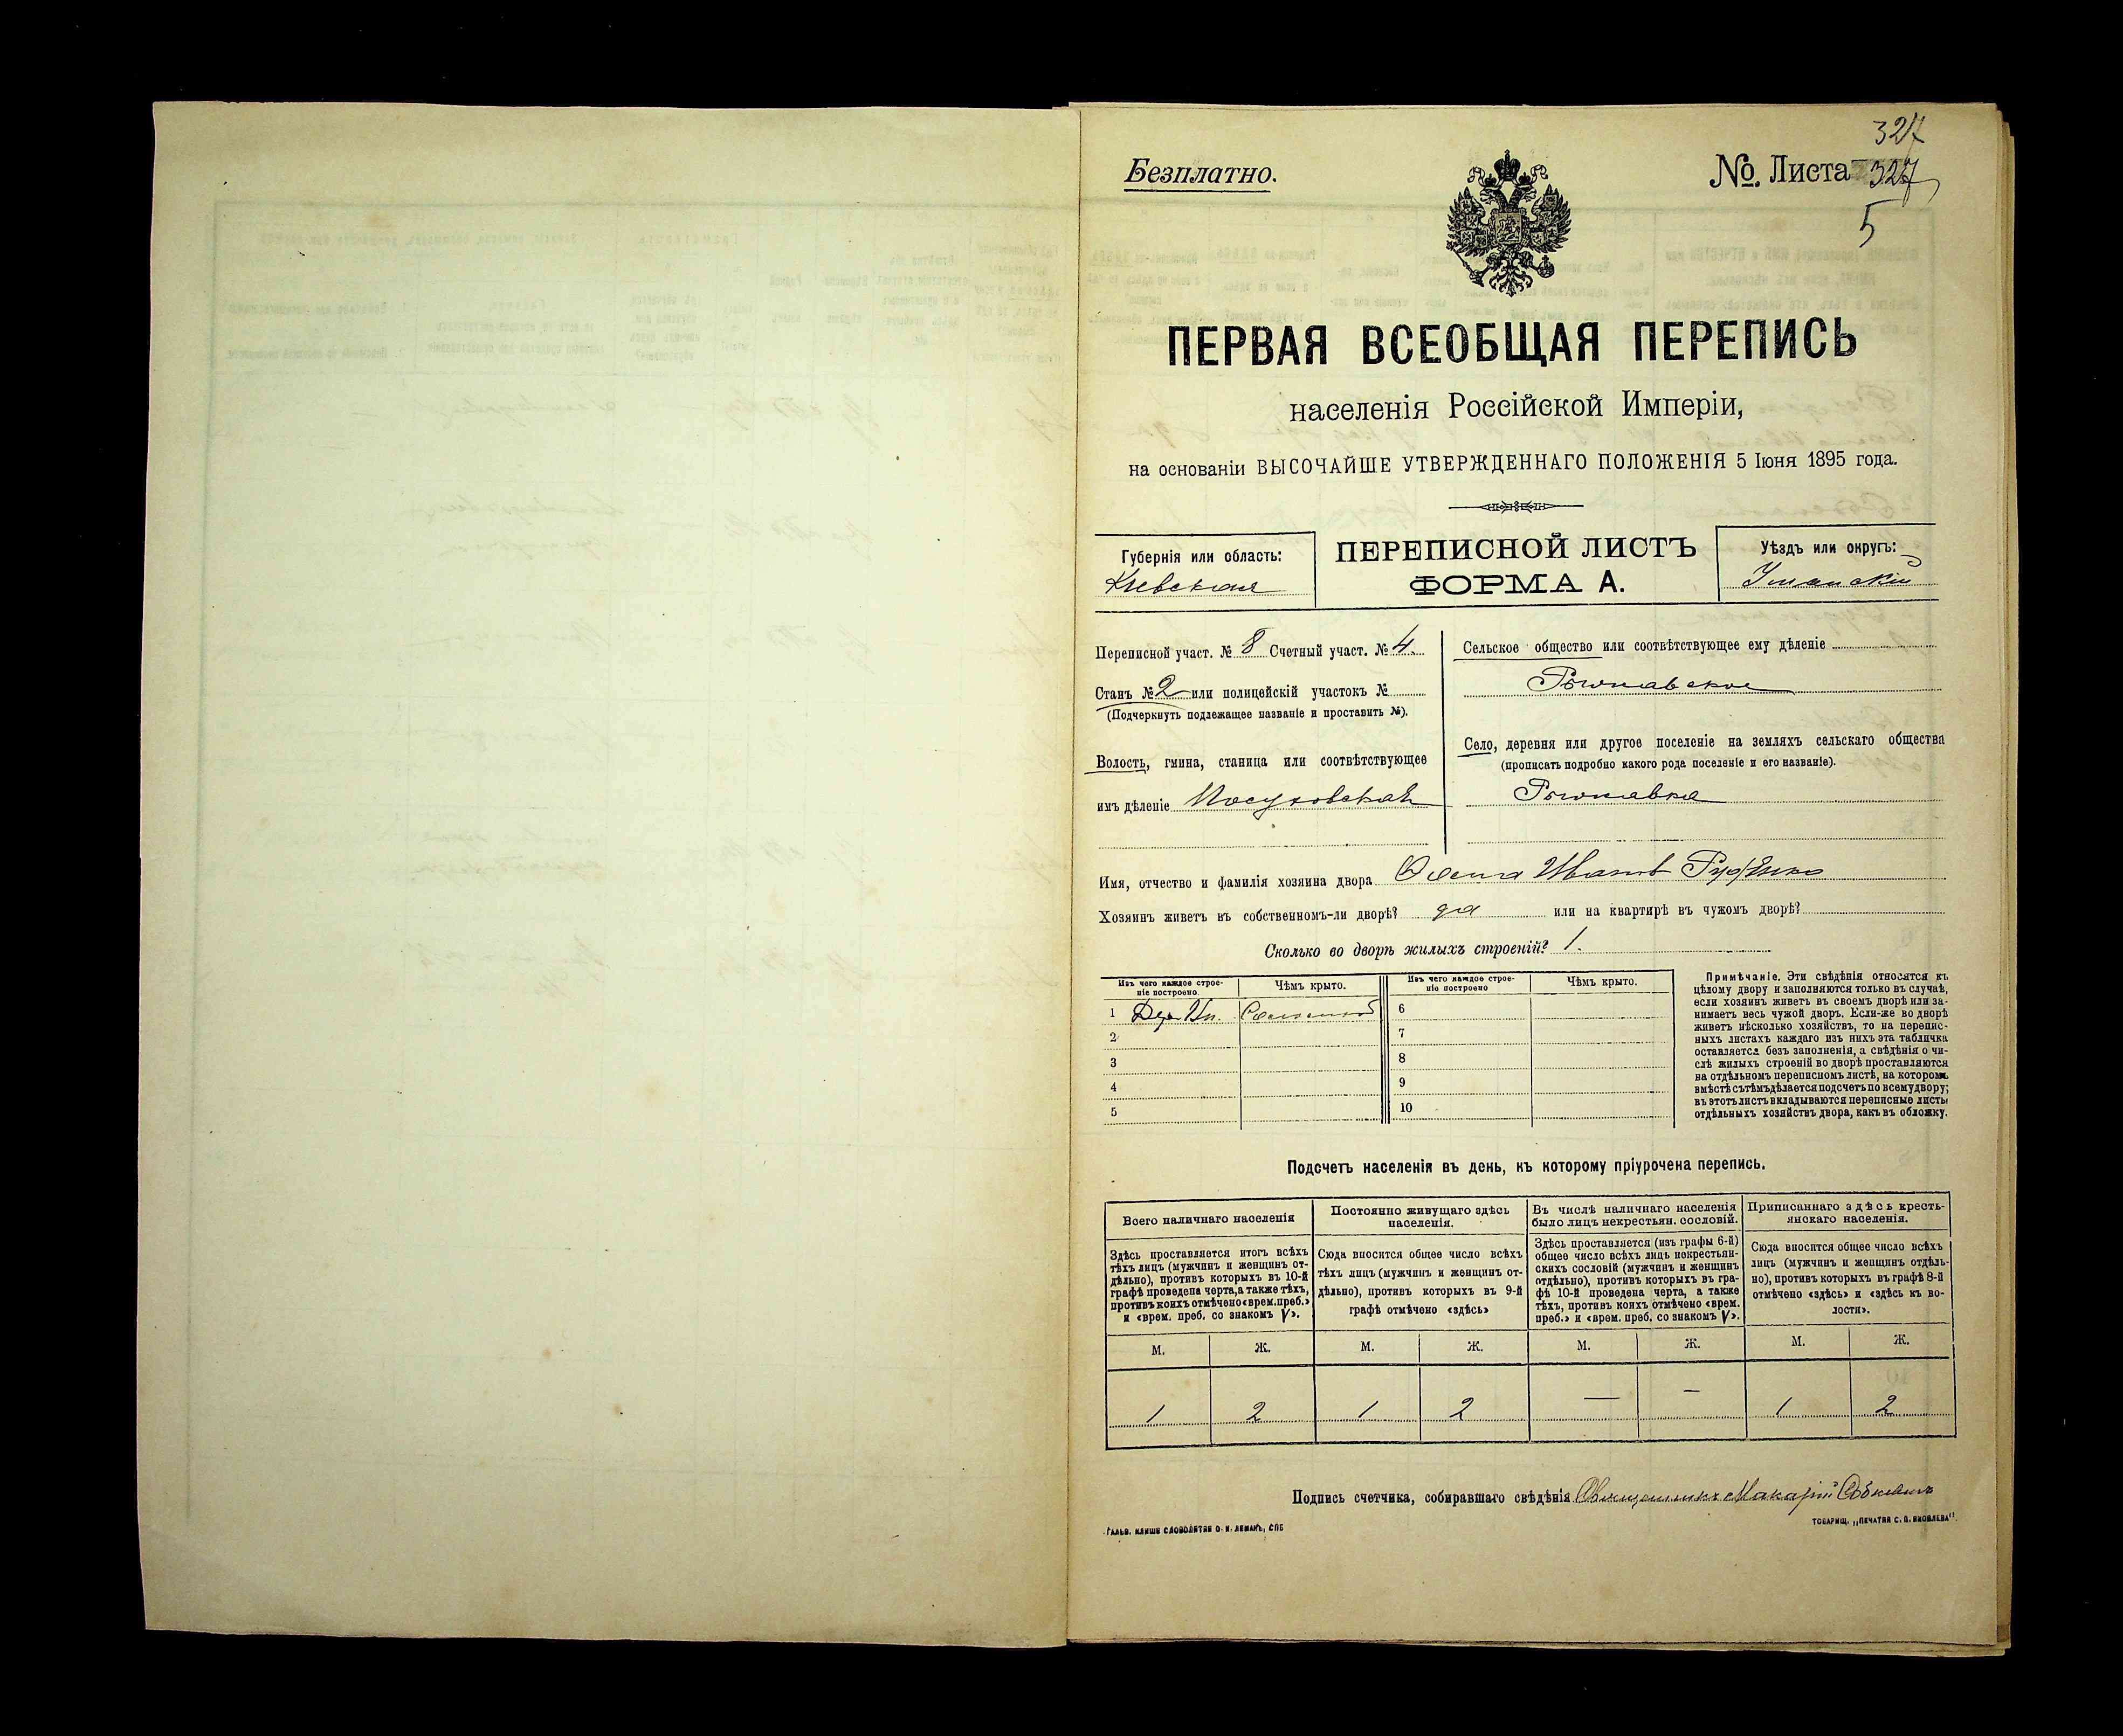 327
Безплатно.
№. Листа 327
5
ПЕРВАЯ ВСЕОБЩАЯ ПЕРЕПИСЬ
населенія Россійской Имперіи,
на основаніи ВЫСОЧАЙШЕ УТВЕРЖДЕННАГО ПОЛОЖЕНІЯ 5 Іюня 1895 года.
Губернія или область:
Кіевская
ПЕРЕПИСНОЙ ЛИСТЪ
ФОРМА А.
Уѣздъ или округъ:
Уманскій
Переписной участ. № 8 Счетный участ. № 4.
Станъ № 2 или полицейскій участокъ №
(Подчеркнуть подлежащее названіе и проставить №).
Волость, гмина, станица или соотвѣтствующее
имъ дѣленіе
Сельское общество или соотвѣтствующее ему дѣленіе
Село, деревня или другое поселеніе на земляхъ сельскаго общества
(прописать подробно какого рода поселеніе и его названіе).
Имя, отчество и фамилія хозяина двора Иванъ
Хозяинъ живетъ въ собственномъ-ли дворѣ? да или на квартирѣ въ чужомъ дворѣ?
Сколько во дворѣ жилыхъ строеній? 1.
Изъ чего каждое строе-
ніе построено.
Чѣмъ крыто.
Изъ чего каждое строе-
ніе построено
Чѣмъ крыто.
1
6
2
7
3
8
4
9
5
10
Примѣчаніе. Эти свѣдѣнія относятся къ
цѣлому двору и заполняются только въ случаѣ,
если хозяинъ живетъ въ своемъ дворѣ или за-
нимаетъ весь чужой дворъ. Если-же во дворѣ
живетъ нѣсколько хозяйствъ, то на перепис-
ныхъ листахъ каждаго изъ нихъ эта табличка
оставляется безъ заполненія, а свѣдѣнія о чи-
слѣ жилыхъ строеній во дворѣ проставляются
на отдѣльномъ переписномъ листѣ, на которомъ
вмѣстѣ съ тѣмъ дѣлается подсчетъ по всему двору;
въ этотъ листъ вкладываются переписные листы
отдѣльныхъ хозяйствъ двора, какъ въ обложку.
Подсчетъ населенія въ день, къ которому пріурочена перепись.
Всего наличнаго населенія
Здѣсь проставляется итогъ всѣхъ
тѣхъ лицъ (мужчинъ и женщинъ от-
дѣльно), противъ которыхъ въ 10-й
графѣ проведена черта, а также тѣхъ,
противъ коихъ отмѣчено «врем. преб.»
и «врем. преб. со знакомъ V».
Постоянно живущаго здѣсь
населенія.
Сюда вносится общее число всѣхъ
тѣхъ лицъ (мужчинъ и женщинъ от-
дѣльно), противъ которыхъ въ 9-й
графѣ отмѣчено «здѣсь»
Въ числѣ наличнаго населенія
было лицъ некрестьян. сословій.
Здѣсь проставляется (изъ графы 6-й)
общее число всѣхъ лицъ некрестьян-
скихъ сословій (мужчинъ и женщинъ
отдѣльно), противъ которыхъ въ гра-
фѣ 10-й проведена черта, а также
тѣхъ, противъ коихъ отмѣчено «врем.
преб.» и «врем. преб. со знакомъ V».
Приписаннаго здѣсь кресть-
янскаго населенія.
Сюда вносится общее число всѣхъ
лицъ (мужчинъ и женщинъ отдѣль-
но), противъ которыхъ въ графѣ 8-й
отмѣчено «здѣсь» и «здѣсь къ во-
лости».
М. Ж. М. Ж. М. Ж. М. Ж.
1 2 1 2 — — 1 2
Подпись счетчика, собиравшаго свѣдѣнія Священникъ Макарій
ГАЛЬВ. КЛИШЕ СЛОВОЛИТНИ О. И. ЛЕМАНЪ, СПБ
ТОВАРИЩ. „ПЕЧАТНЯ С. П. ЯКОВЛЕВА“.